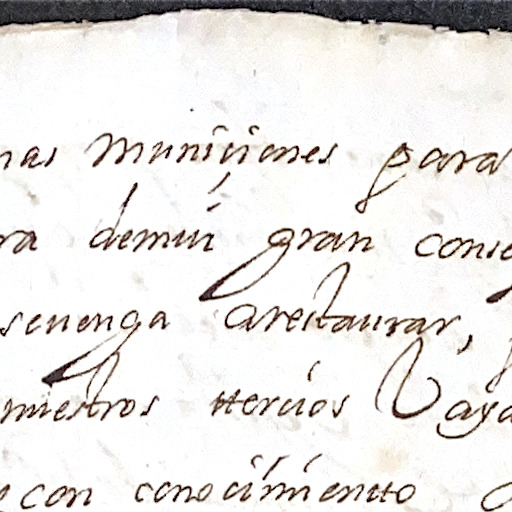 nas municiones para
ra demui gran conse
sevenga arestaurar,
nuestros ttercios vaya
con conocimientto